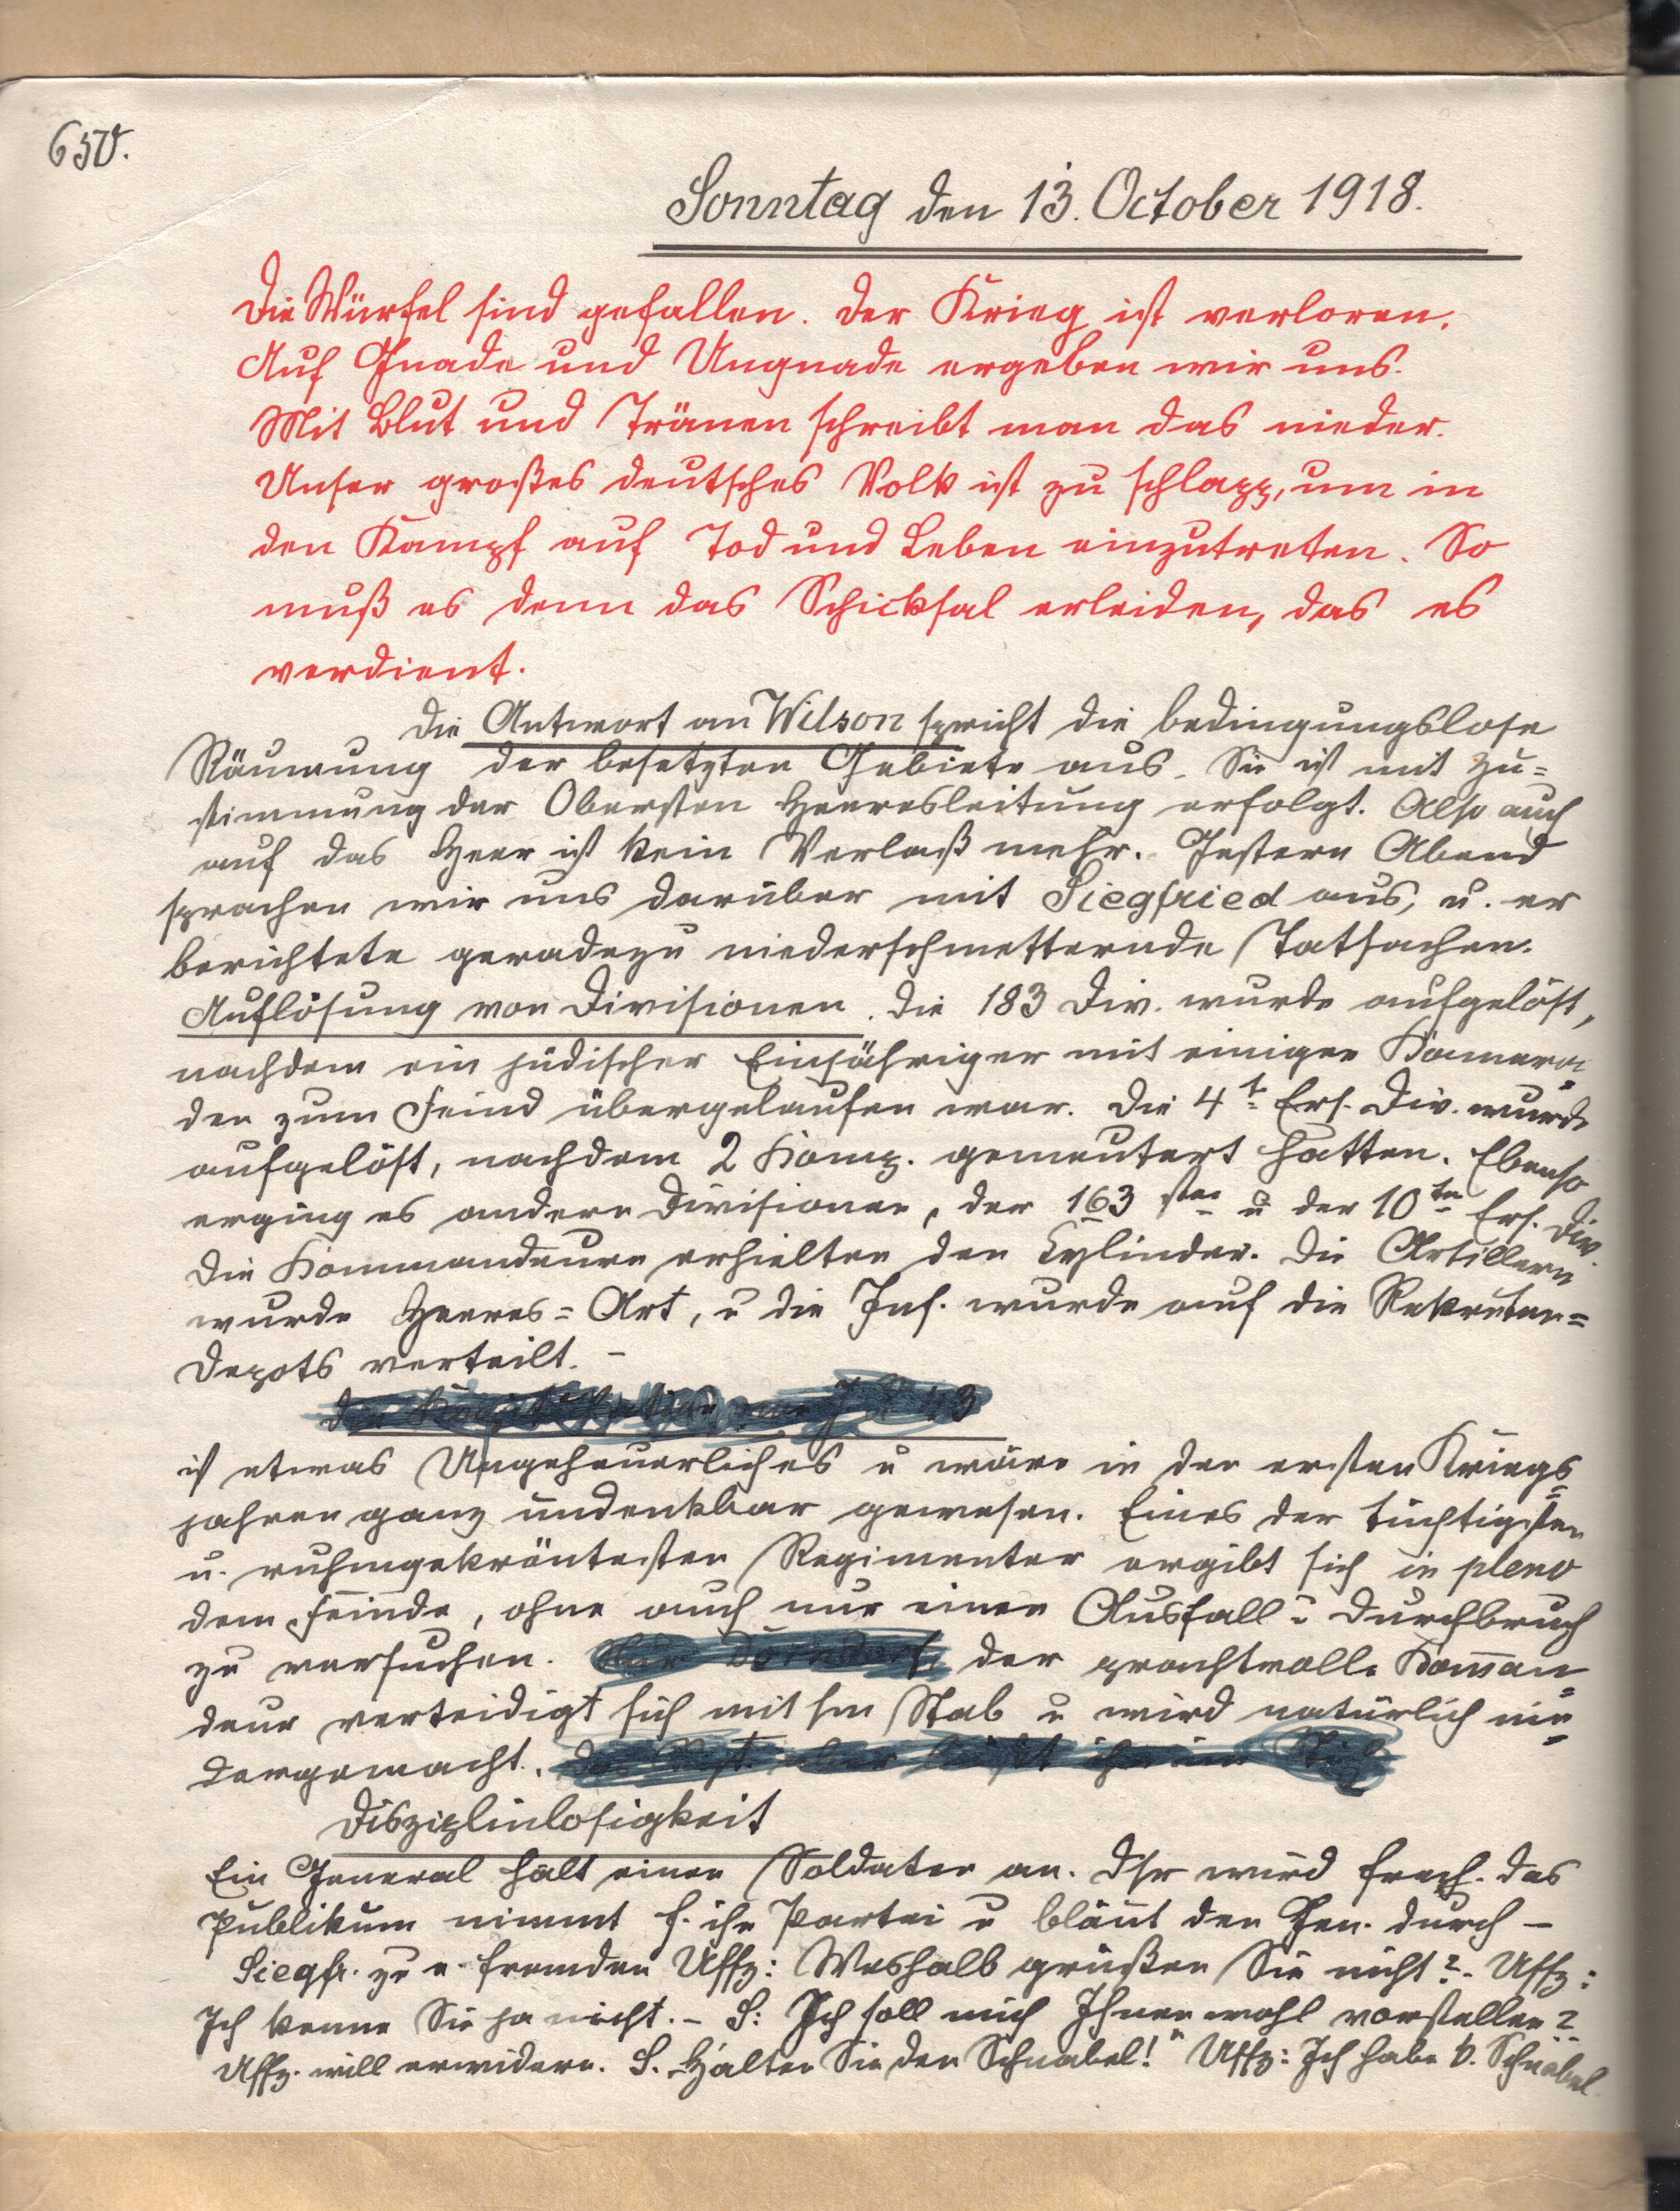 650.
Sonntag den 13. October 1918.
Die Würfel sind gefallen. Der Krieg ist verloren.
Auf Gnade und Ungnade ergeben wir uns.
Mit Blut und Tränen schreibt man das nieder.
Unser großes deutsches Volk ist zu schlapp, um in
den Kampf auf Tod und Leben einzutreten. So
muß es denn das Schicksal erleiden, das es
verdient.
Die Antwort an Wilson spricht die bedingungslose
Räumung der besetzten Gebiete aus. Sie ist mit Zu=
stimmung der Obersten Heeresleitung erfolgt. Also auch
auf das Heer ist kein Verlaß mehr. Gestern Abend
sprachen wir uns darüber mit Siegfried aus, u. er
berichtete geradezu niederschmetternde Tatsachen.
Auflösung von Divisionen. Die 183 Div. wurde aufgelöst,
nachdem ein jüdischer Einjähriger mit einigen Kamera=
den zum Feind übergelaufen war. Die 4t Ers. Div. wurde
aufgelöst, nachdem 2 Komp. gemeutert hatten. Ebenso
erging es andern Divisionen, der 163 sten u der 10ten Ers. Div.
Die Kommandeure erhielten den Cylinder. Die Artillerie
wurde Heeres=Art, u die Inf. wurde auf die Rekruten=
Depots verteilt. –
ist etwas Ungeheuerliches u wäre in den ersten Kriegs=
jahren ganz undenkbar gewesen. Eines der tüchtigsten
u. ruhmgekröntesten Regimenter ergibt sich in pleno
dem Feinde, ohne auch nur einen Ausfall u Durchbruch
zu versuchen. der prachtvolle Komman=
deur verteidigt sich mit sm Stab u wird natürlich nie=
dergemacht.
Disziplinlosigkeit
Ein General hält einen Soldaten an. Dsr wird frech. Das
Publikum nimmt f. ihn Partei u bläut den Gen. durch –
Siegfr. zu e. fremden Uffz: Weshalb grüßen Sie nicht? - Uffz:
Ich kenne Sie ja nicht. – S: Ich soll mich Ihnen wohl vorstellen?
Uffz. will erwidern. S. Halten Sie den Schnabel!" Uffz: Ich habe k. Schnabel